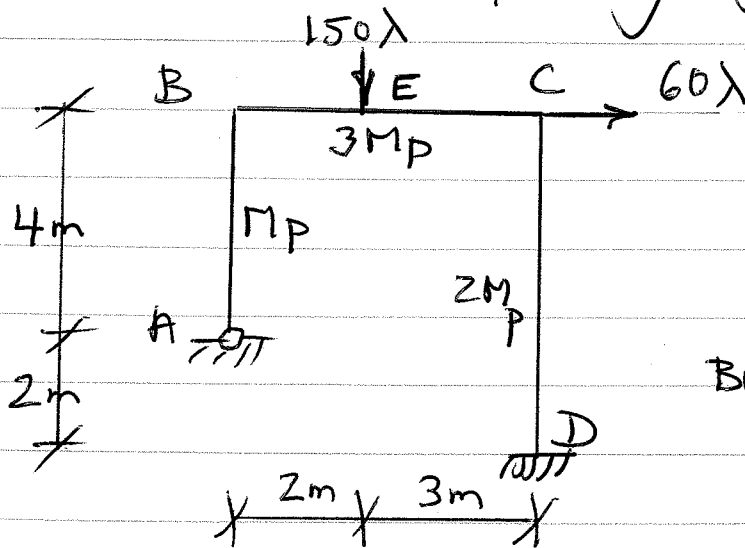 150λ
B E C 60λ
3Mp
4m Mp
2Mp
A
2m
D
2m 3m